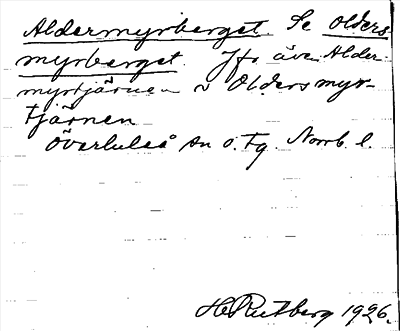 Aldermyrberget. Se Olders
myrberget. Jfr även Alder
myrtjärnen o Oldersmyr-
tjärnen
Överluleå sn o. tg. Norrb. l.
H Rutberg 1926.